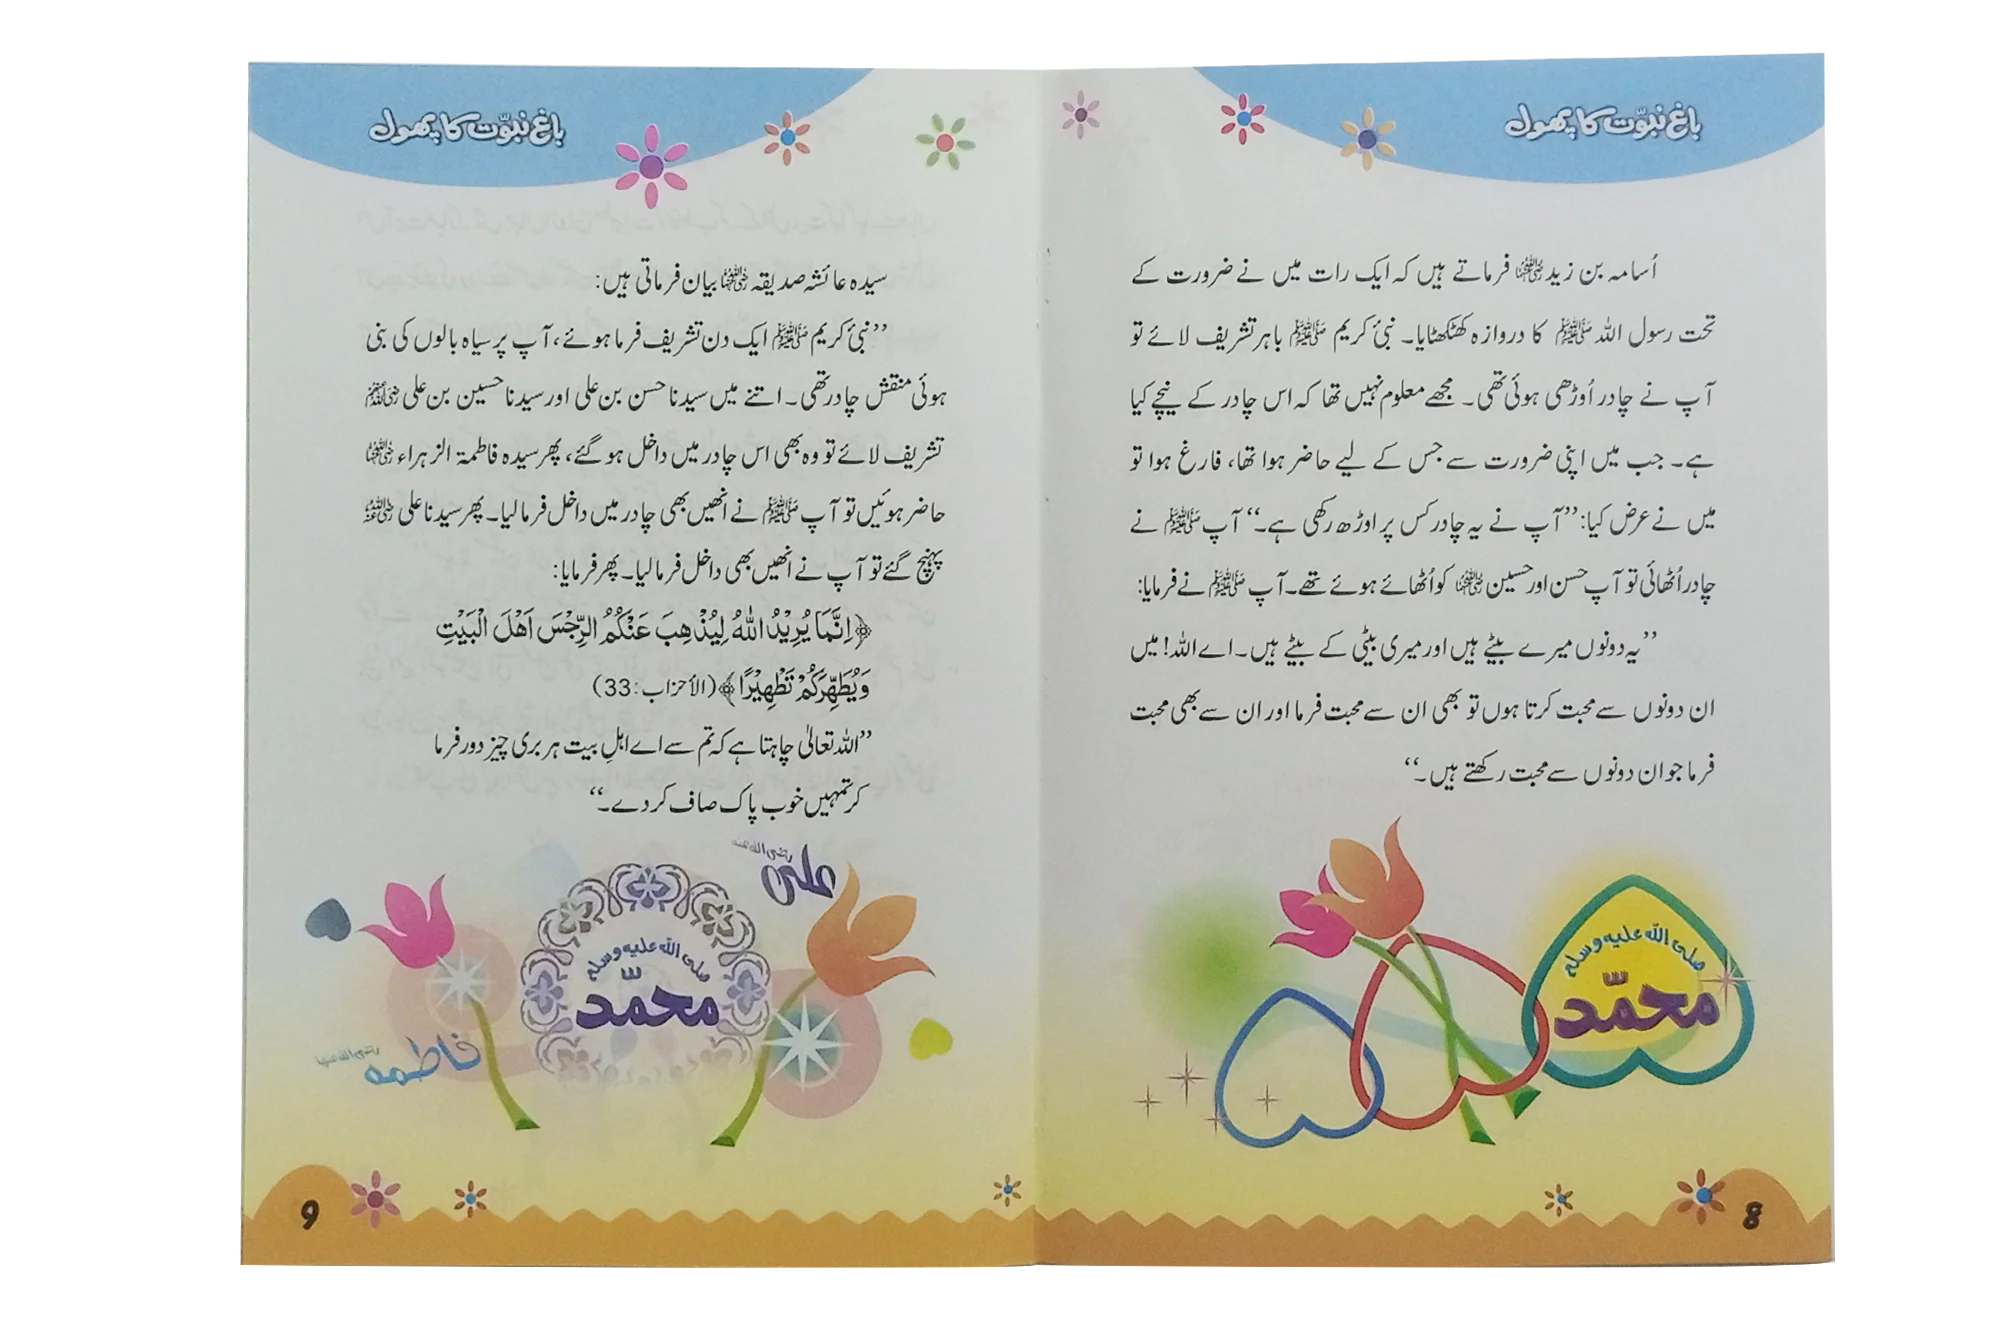 باغ نبوّت کا پھول
اُسامہ بن زید رضی اللہ عنہما فرماتے ہیں کہ ایک رات میں نے ضرورت کے
تحت رسول اللہ ﷺ کا دروازہ کھٹکھٹایا۔ نبیٔ کریم ﷺ باہر تشریف لائے تو
آپ نے چادر اُوڑھی ہوئی تھی۔ مجھے معلوم نہیں تھا کہ اس چادر کے نیچے کیا
ہے۔ جب میں اپنی ضرورت سے جس کے لیے حاضر ہوا تھا، فارغ ہوا تو
میں نے عرض کیا: ’’آپ نے یہ چادر کس پر اوڑھ رکھی ہے۔‘‘ آپ ﷺ نے
چادر اُٹھائی تو آپ حسن اور حسین رضی اللہ عنہما کو اُٹھائے ہوئے تھے۔ آپ ﷺ نے فرمایا:
’’یہ دونوں میرے بیٹے ہیں اور میری بیٹی کے بیٹے ہیں۔ اے اللہ! میں
ان دونوں سے محبت کرتا ہوں تو بھی ان سے محبت فرما اور ان سے بھی محبت
فرما جو ان دونوں سے محبت رکھتے ہیں۔‘‘
صلى الله عليه وسلم
محمّد
8
باغ نبوّت کا پھول
سیدہ عائشہ صدیقہ رضی اللہ عنہا بیان فرماتی ہیں:
’’نبیٔ کریم ﷺ ایک دن تشریف فرما ہوئے، آپ پر سیاہ بالوں کی بنی
ہوئی منقش چادر تھی۔ اتنے میں سیدنا حسن بن علی اور سیدنا حسین بن علی رضی اللہ عنہم
تشریف لائے تو وہ بھی اس چادر میں داخل ہو گئے، پھر سیدہ فاطمۃ الزہراء رضی اللہ عنہا
حاضر ہوئیں تو آپ ﷺ نے انھیں بھی چادر میں داخل فرما لیا۔ پھر سیدنا علی رضی اللہ عنہ
پہنچ گئے تو آپ نے انھیں بھی داخل فرما لیا۔ پھر فرمایا:
﴿اِنَّمَا يُرِيْدُ اللّٰهُ لِيُذْهِبَ عَنْكُمُ الرِّجْسَ اَهْلَ الْبَيْتِ
وَيُطَهِّرَكُمْ تَطْهِيْرًا﴾ (الأحزاب:33)
’’اللہ تعالیٰ چاہتا ہے کہ تم سے اے اہلِ بیت ہر بری چیز دور فرما
کر تمہیں خوب پاک صاف کر دے۔‘‘
علی رضى الله عنه
صلى الله عليه وسلم
محمّد
فاطمه رضى الله عنها
9